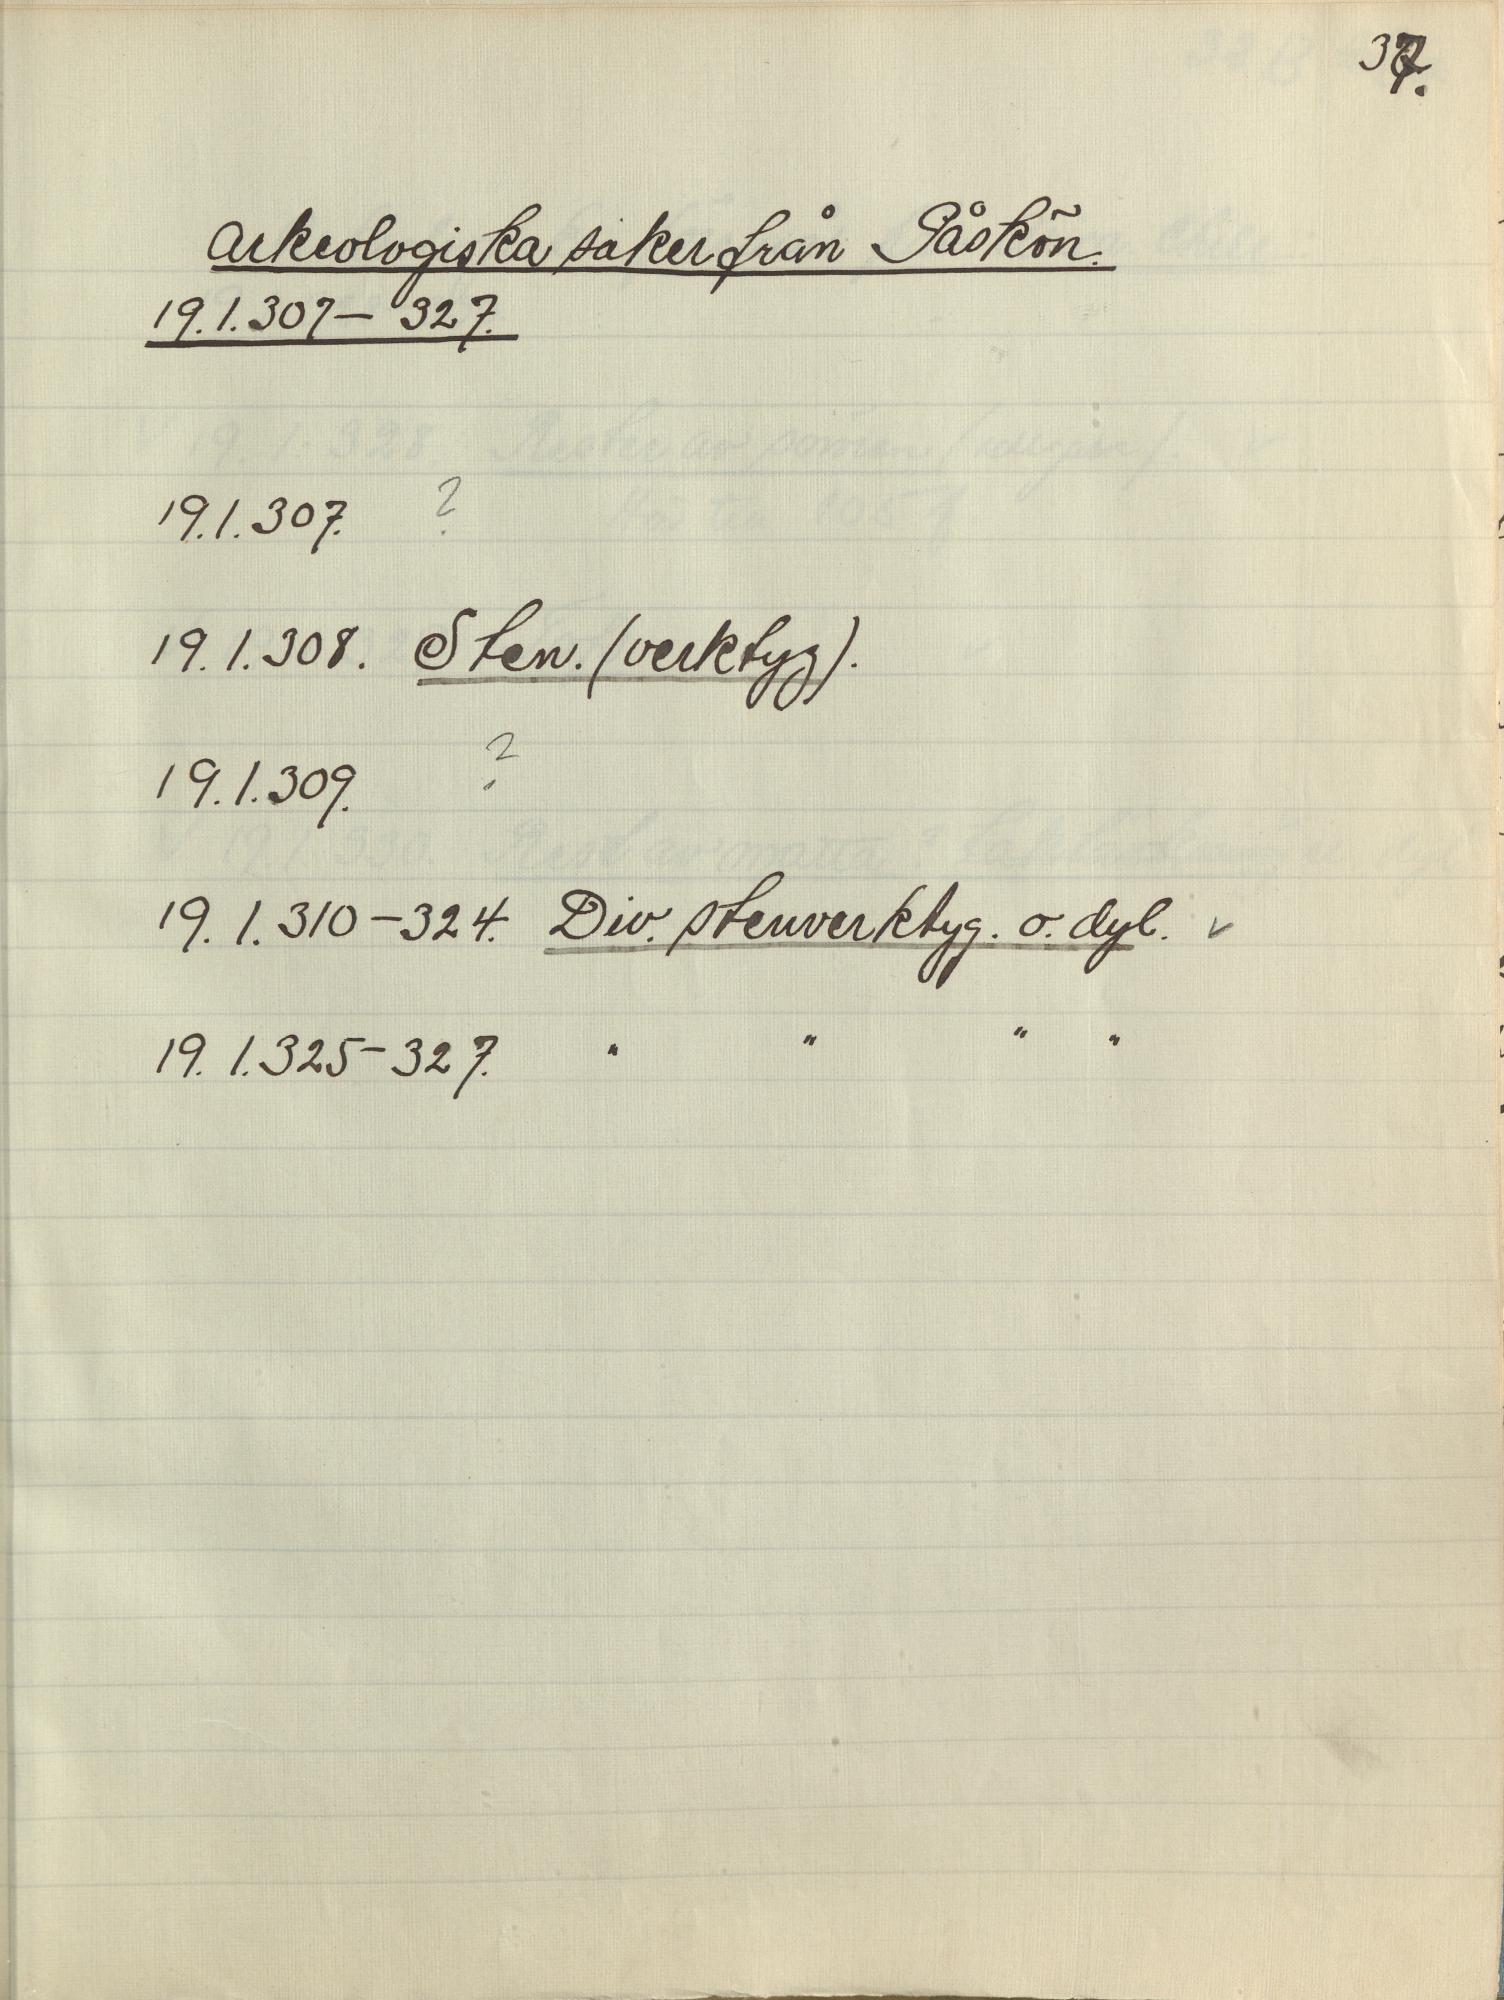 37.
Arkeologiska saker från Påskön.
19.1.307- 327.
19.1.307. ?
19.1.308. Sten. (verktyg).
19.1.309. ?
19.1.310-324. Div. stenverktyg. o. dyl. v
19.1.325-327. " " " "